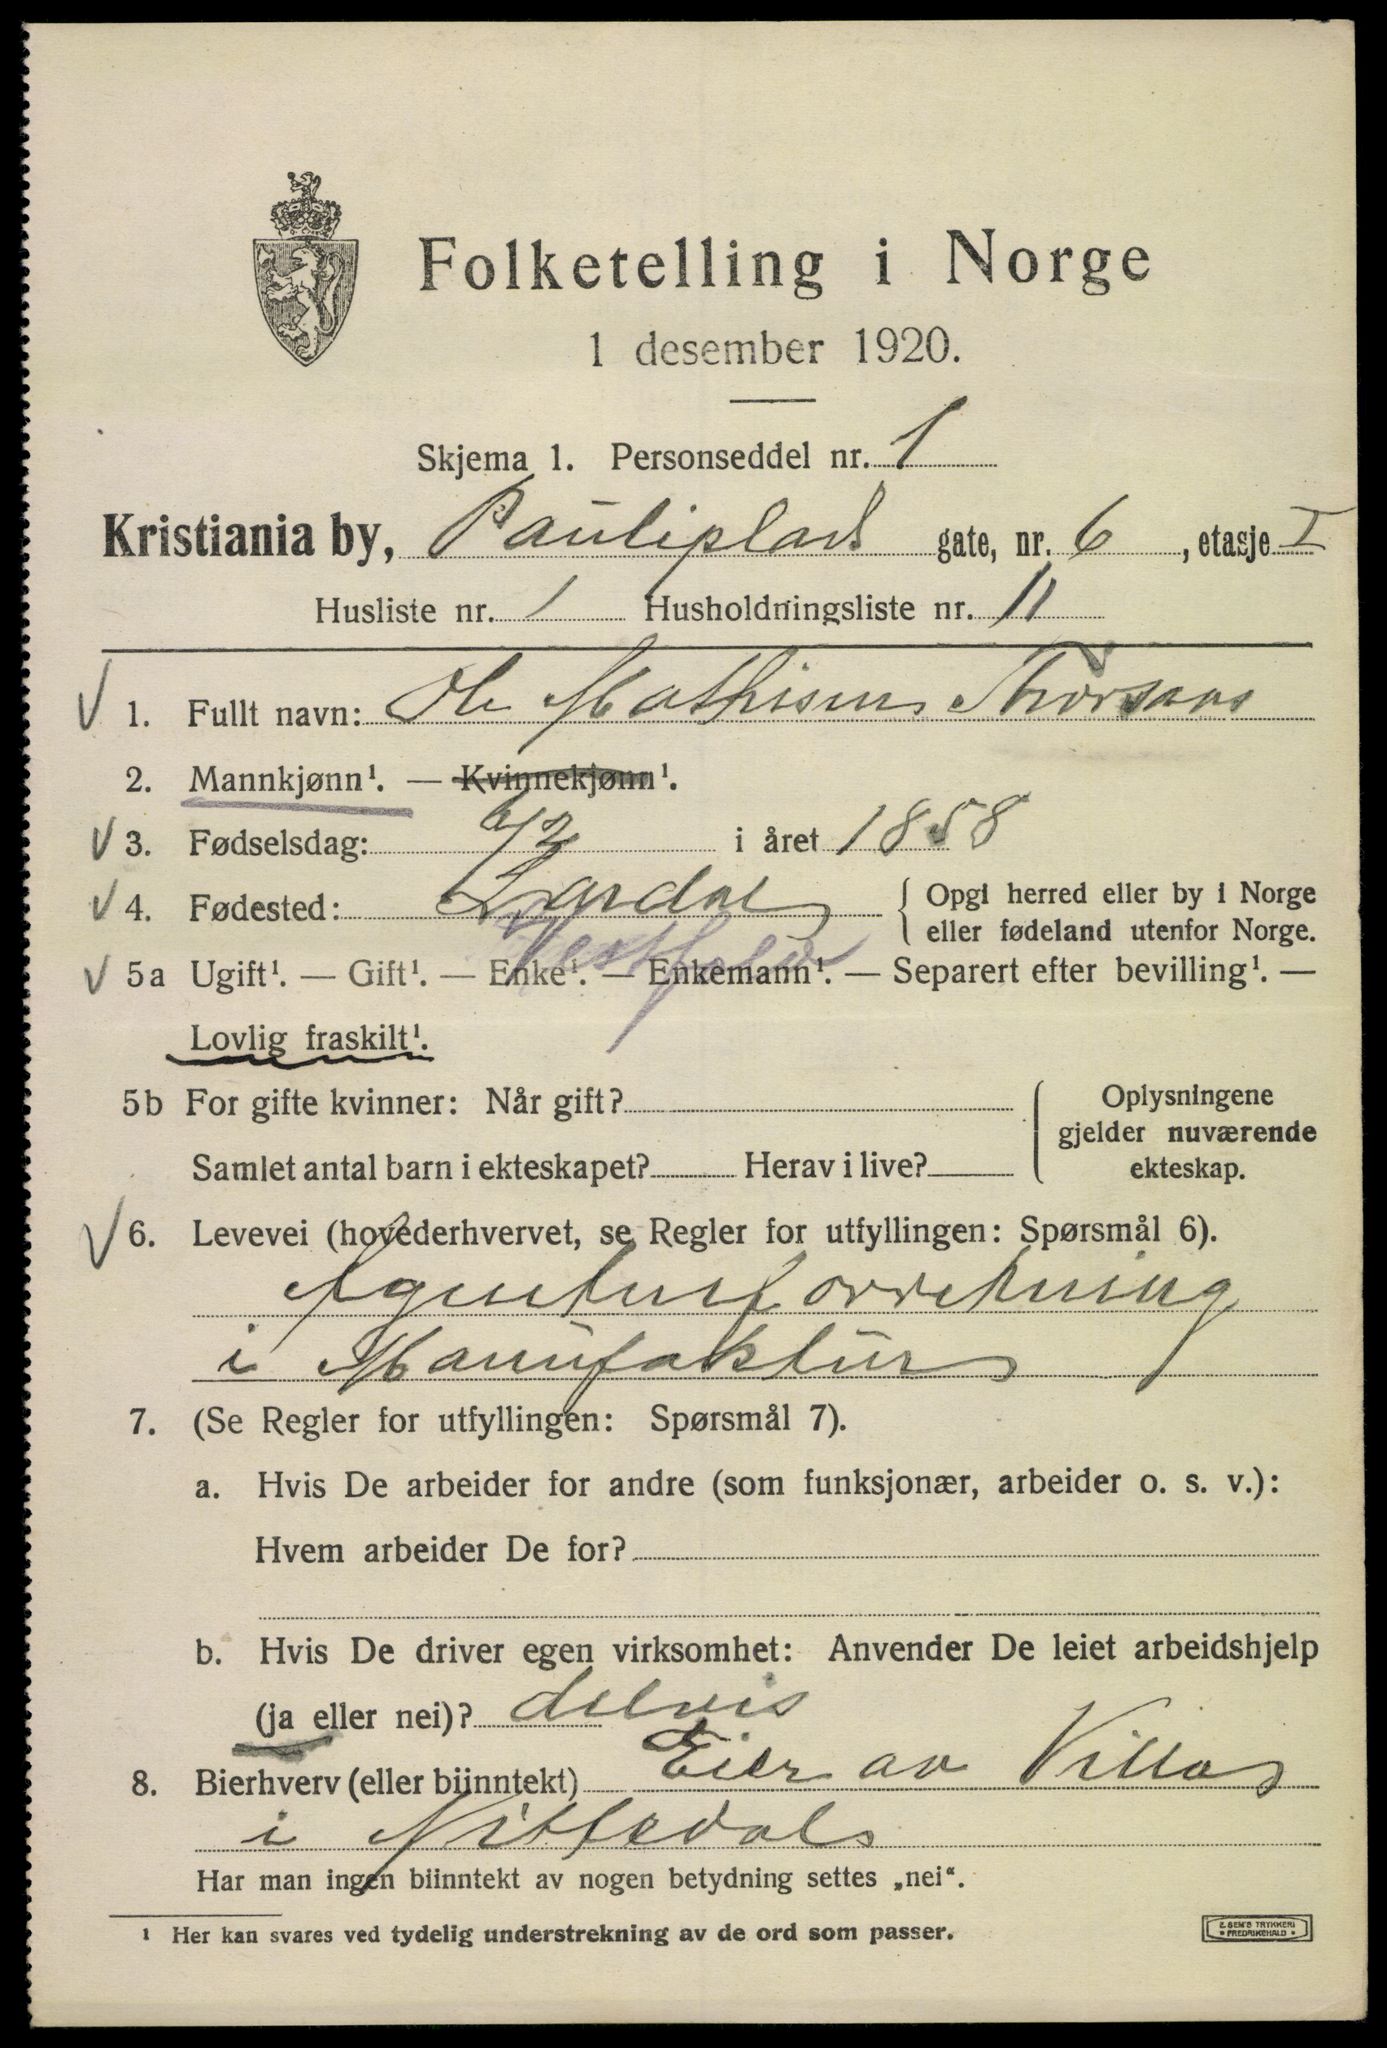 Folketelling i Norge
1 desember 1920.
Skjema 1. Personseddel nr. 1
Kristiania by, Pauliplads gate, nr. 6, etasje I
Husliste nr. 1 Husholdningsliste nr. 11
1. Fullt navn: Ole Mathisen Thorsaas
2. Mannkjønn¹. — Kvinnekjønn¹.
3. Fødselsdag: 6/2 i året 1858
4. Fødested: Lardal { Opgi herred eller by i Norge
eller fødeland utenfor Norge.
Vestfold
5a Ugift¹. — Gift¹. — Enke¹. — Enkemann¹. — Separert efter bevilling¹. —
Lovlig fraskilt¹.
5b For gifte kvinner: Når gift? { Oplysningene
gjelder nuværende
Samlet antal barn i ekteskapet? Herav i live? ekteskap.
6. Levevei (hovederhvervet, se Regler for utfyllingen: Spørsmål 6).
Agenturforretning
i Manufaktur
7. (Se Regler for utfyllingen: Spørsmål 7).
a. Hvis De arbeider for andre (som funksjonær, arbeider o. s. v.):
Hvem arbeider De for?
b. Hvis De driver egen virksomhet: Anvender De leiet arbeidshjelp
(ja eller nei)? delvis
8. Bierhverv (eller biinntekt) Eier av Villa
i Nittedal
Har man ingen biinntekt av nogen betydning settes „nei“.
¹ Her kan svares ved tydelig understrekning av de ord som passer.
E. SEM'S TRYKKERI
FREDRIKSHALD